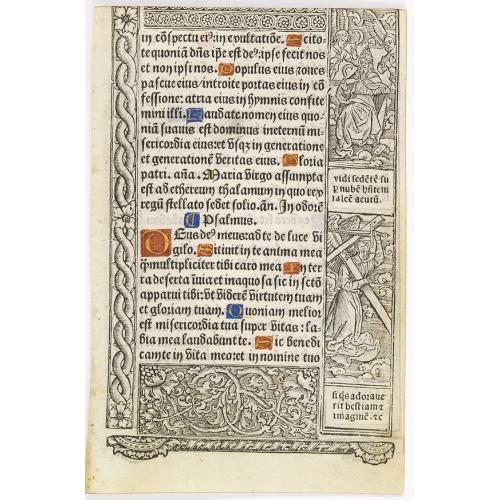 in cōspectu ei⁹: in exultatiōe. Scito
te quoniā dn̄s ip̄e est de⁹: ipse fecit nos
et non ipsi nos. Populus eius ⁊ oues
pascue eius/ introite portas eius in cō
fessione: atria eius in hymnis confite
mini illi. Laudate nomen eius quo
niā suauis est dominus in eternū mi-
sericordia eius: et vsq; in generatione
et generationē veritas eius. Gloria
patri. añā. Maria virgo assumpta
est ad ethereum thalamum in quo rex
regū stellato sedet solio. añ. In odorē
Psalmus.
DEus de⁹ meus: ad te de luce vi
gilo. Sitiuit in te anima mea
q̄ multipliciter tibi caro mea In ter
ra deserta inuia et inaquosa sic in sctō
apparui tibi: vt viderē virtutem tuam
et gloriam tuam. Quoniam melior
est misericordia tua super vitas: la-
bia mea laudabunt te. Sic benedi
cam te in vita mea: et in nomine tuo
vidi sedētē su
ꝑ nubē hn̄tem
falcē acutū.
si q̄s adoraue
rit bestiam ⁊
imaginē. ⁊c